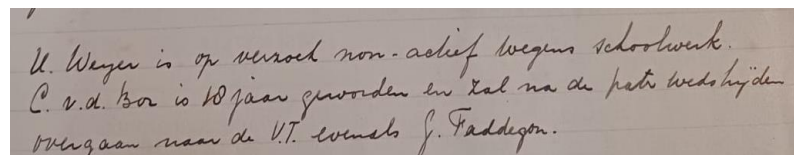 U. Weyer is op verzoek non-actief wegens schoolwerk.
C. v.d. Bor is 18 jaar geworden en zal na de patr wedstrijden
overgaan naar de V.T. evenals G. Faddegon.